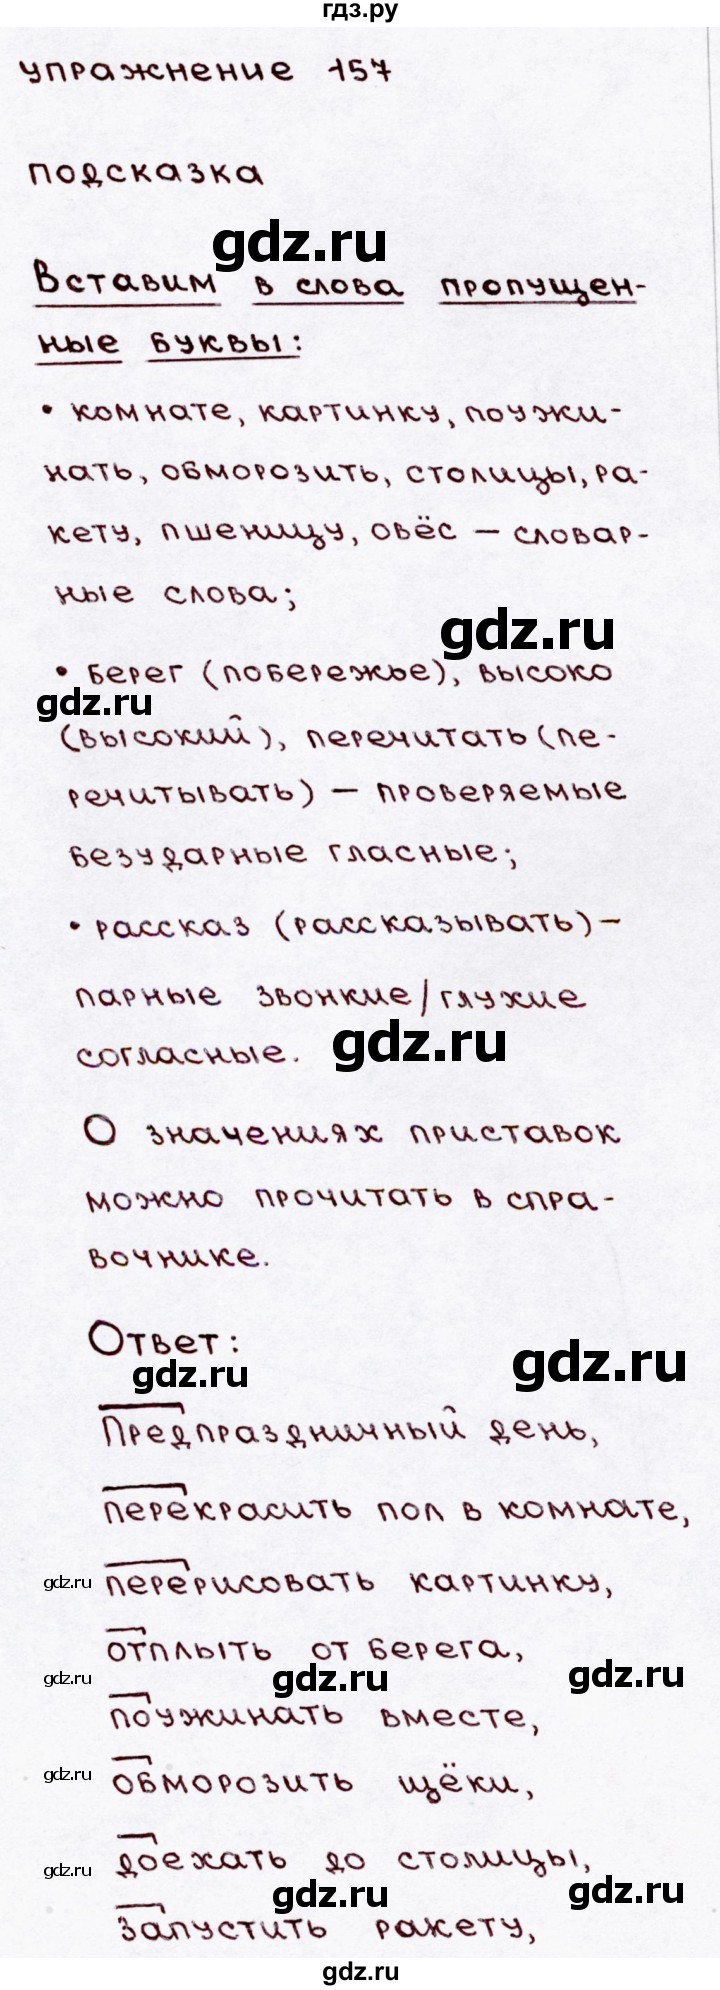 гдз.ру
упражнение 157
подсказка
gdz.ru
Вставим в слова пропущен-
ные буквы:
• комнате, картинку, поужи-
нать, обморозить, столицы, ра-
кету, пшеницу, овёс – словар-
ные слова;
gdz.ru
• берег (побережье), высоко
gdz.ru
(высокий), перечитать (пе-
речитывать) – проверяемые
безударные гласные;
• рассказ (рассказывать) –
парные звонкие/глухие
согласные.
gdz.ru
О значениях приставок
можно прочитать в спра-
вочнике.
Ответ:
gdz.ru
gdz.ru
Предпраздничный день,
перекрасить пол в комнате,
gdz.ru
перерисовать картинку,
отплыть от берега,
gdz.ru
gdz.ru
gdz.ru
поужинать вместе,
gdz.ru
обморозить щёки,
доехать до столицы,
gdz.ru
gdz.ru
gdz.ru
запустить ракету,
gdz.ru